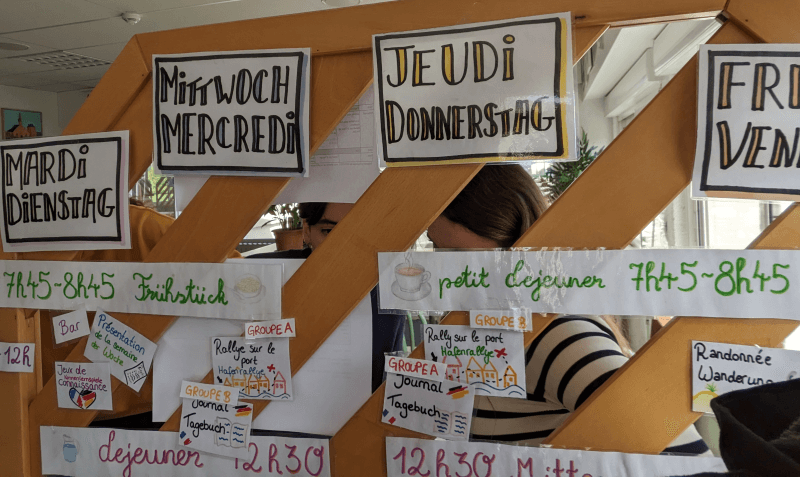 MARDI
DIENSTAG
MITTWOCH
MERCREDI
JEUDI
DONNERSTAG
FRE
VEN
7h45-8h45 Frühstück
petit dejeuner 7h45-8h45
12h
Bar
Présentation
de la semaine
der Woche
Jeux de
Connaissance
GROUPE A
Rallye sur le
port
Hafenrallye
GROUPE B
Journal
Tagebuch
GROUPE B
Rallye sur le
port
Hafenrallye
GROUPE A
Journal
Tagebuch
Randonnée
Wanderun
dejeuner 12h30
12h30 Mitta